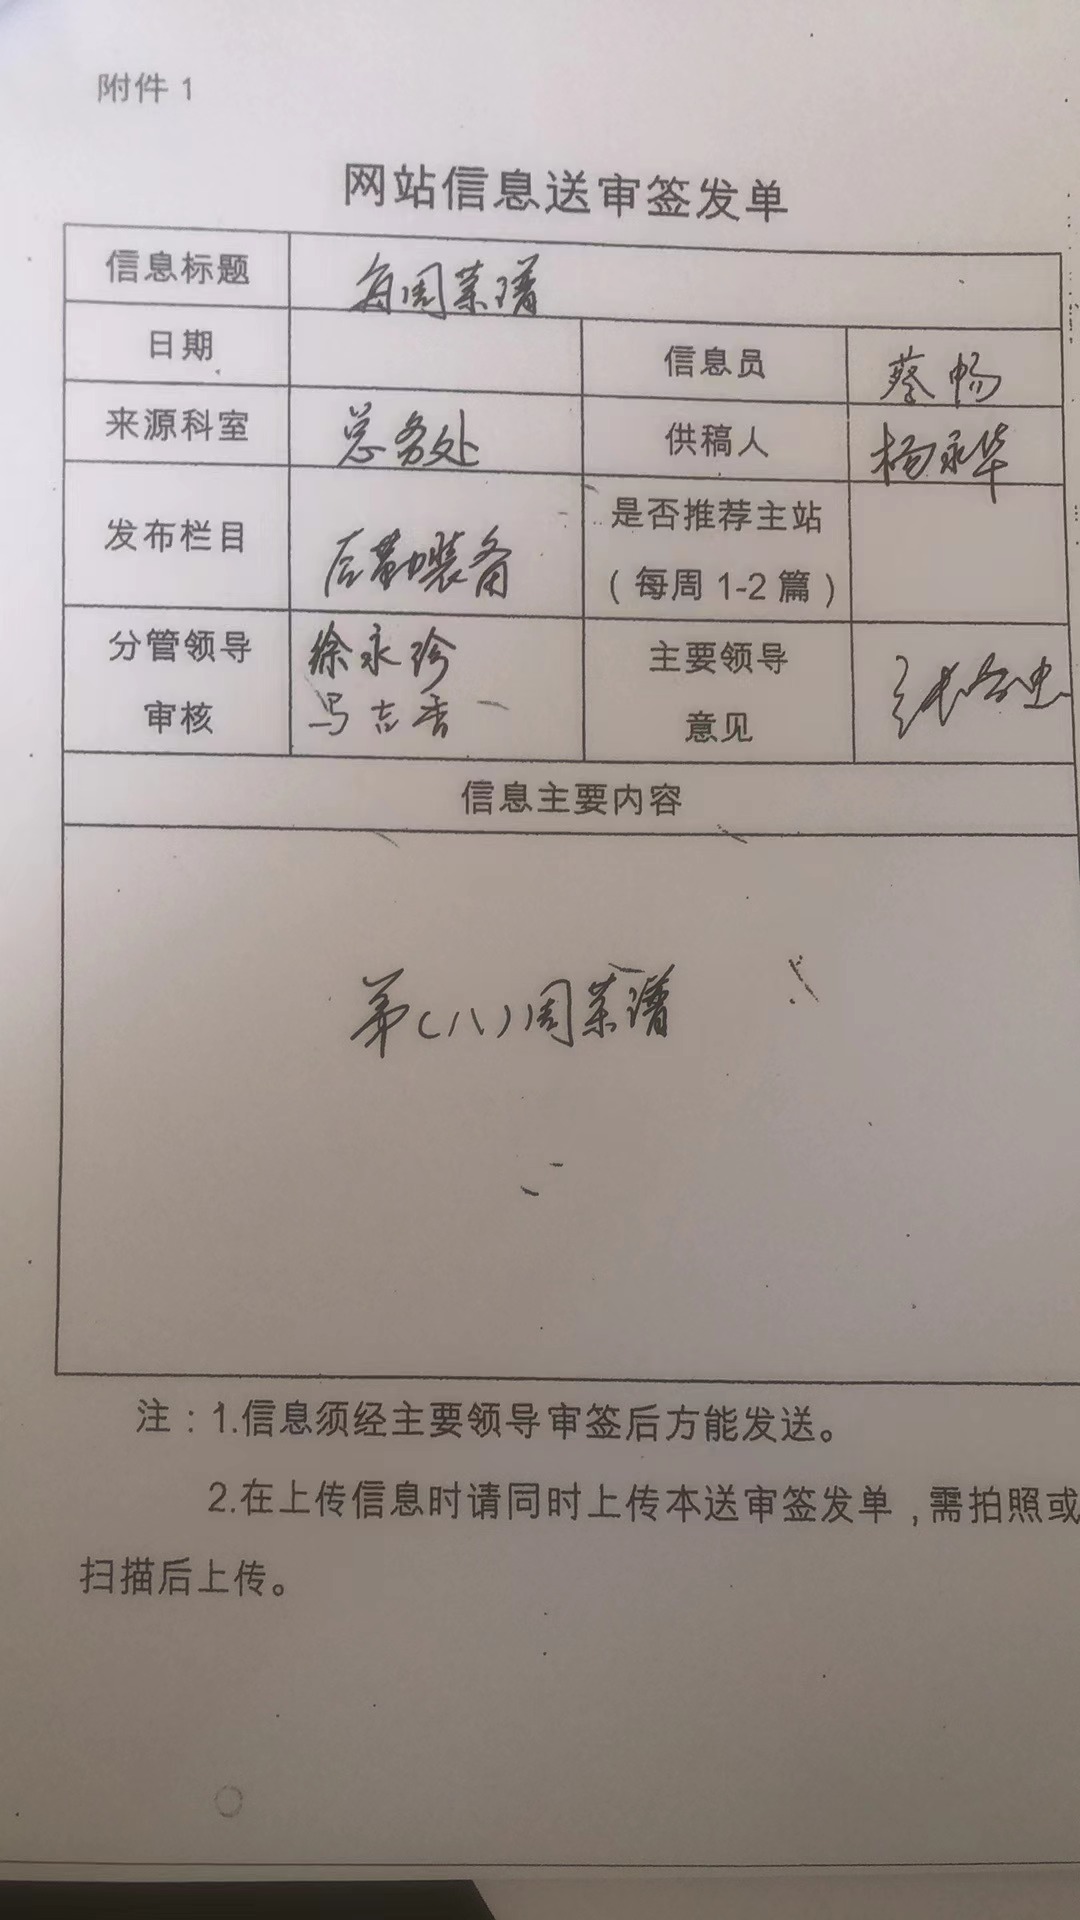 附件 1
网站信息送审签发单
信息标题 每周菜谱
日期 信息员 蔡畅
来源科室 总务处 供稿人 杨永华
发布栏目 后勤装备 是否推荐主站
（每周 1-2 篇）
分管领导 徐永珍 主要领导
审核 马吉香 意见
信息主要内容
第(八)周菜谱
注：1.信息须经主要领导审签后方能发送。
2.在上传信息时请同时上传本送审签发单，需拍照或
扫描后上传。